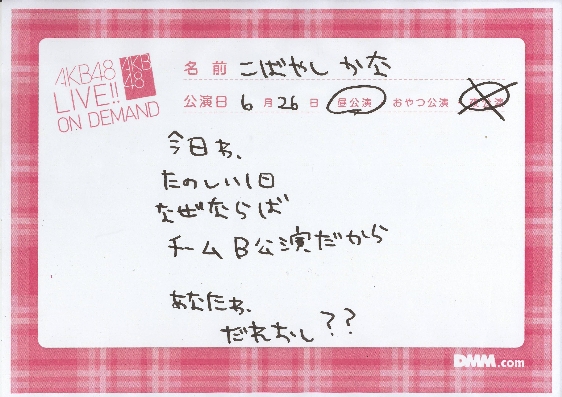 AKB48
LIVE!!
ON DEMAND
AKB
48
名前 こばやし かな
公演日 6月26日 昼公演 おやつ公演 夜公演
今日わ、
たのしい1日
なぜならば
チームB公演だから
あなたわ、
だれおし??
DMM.com